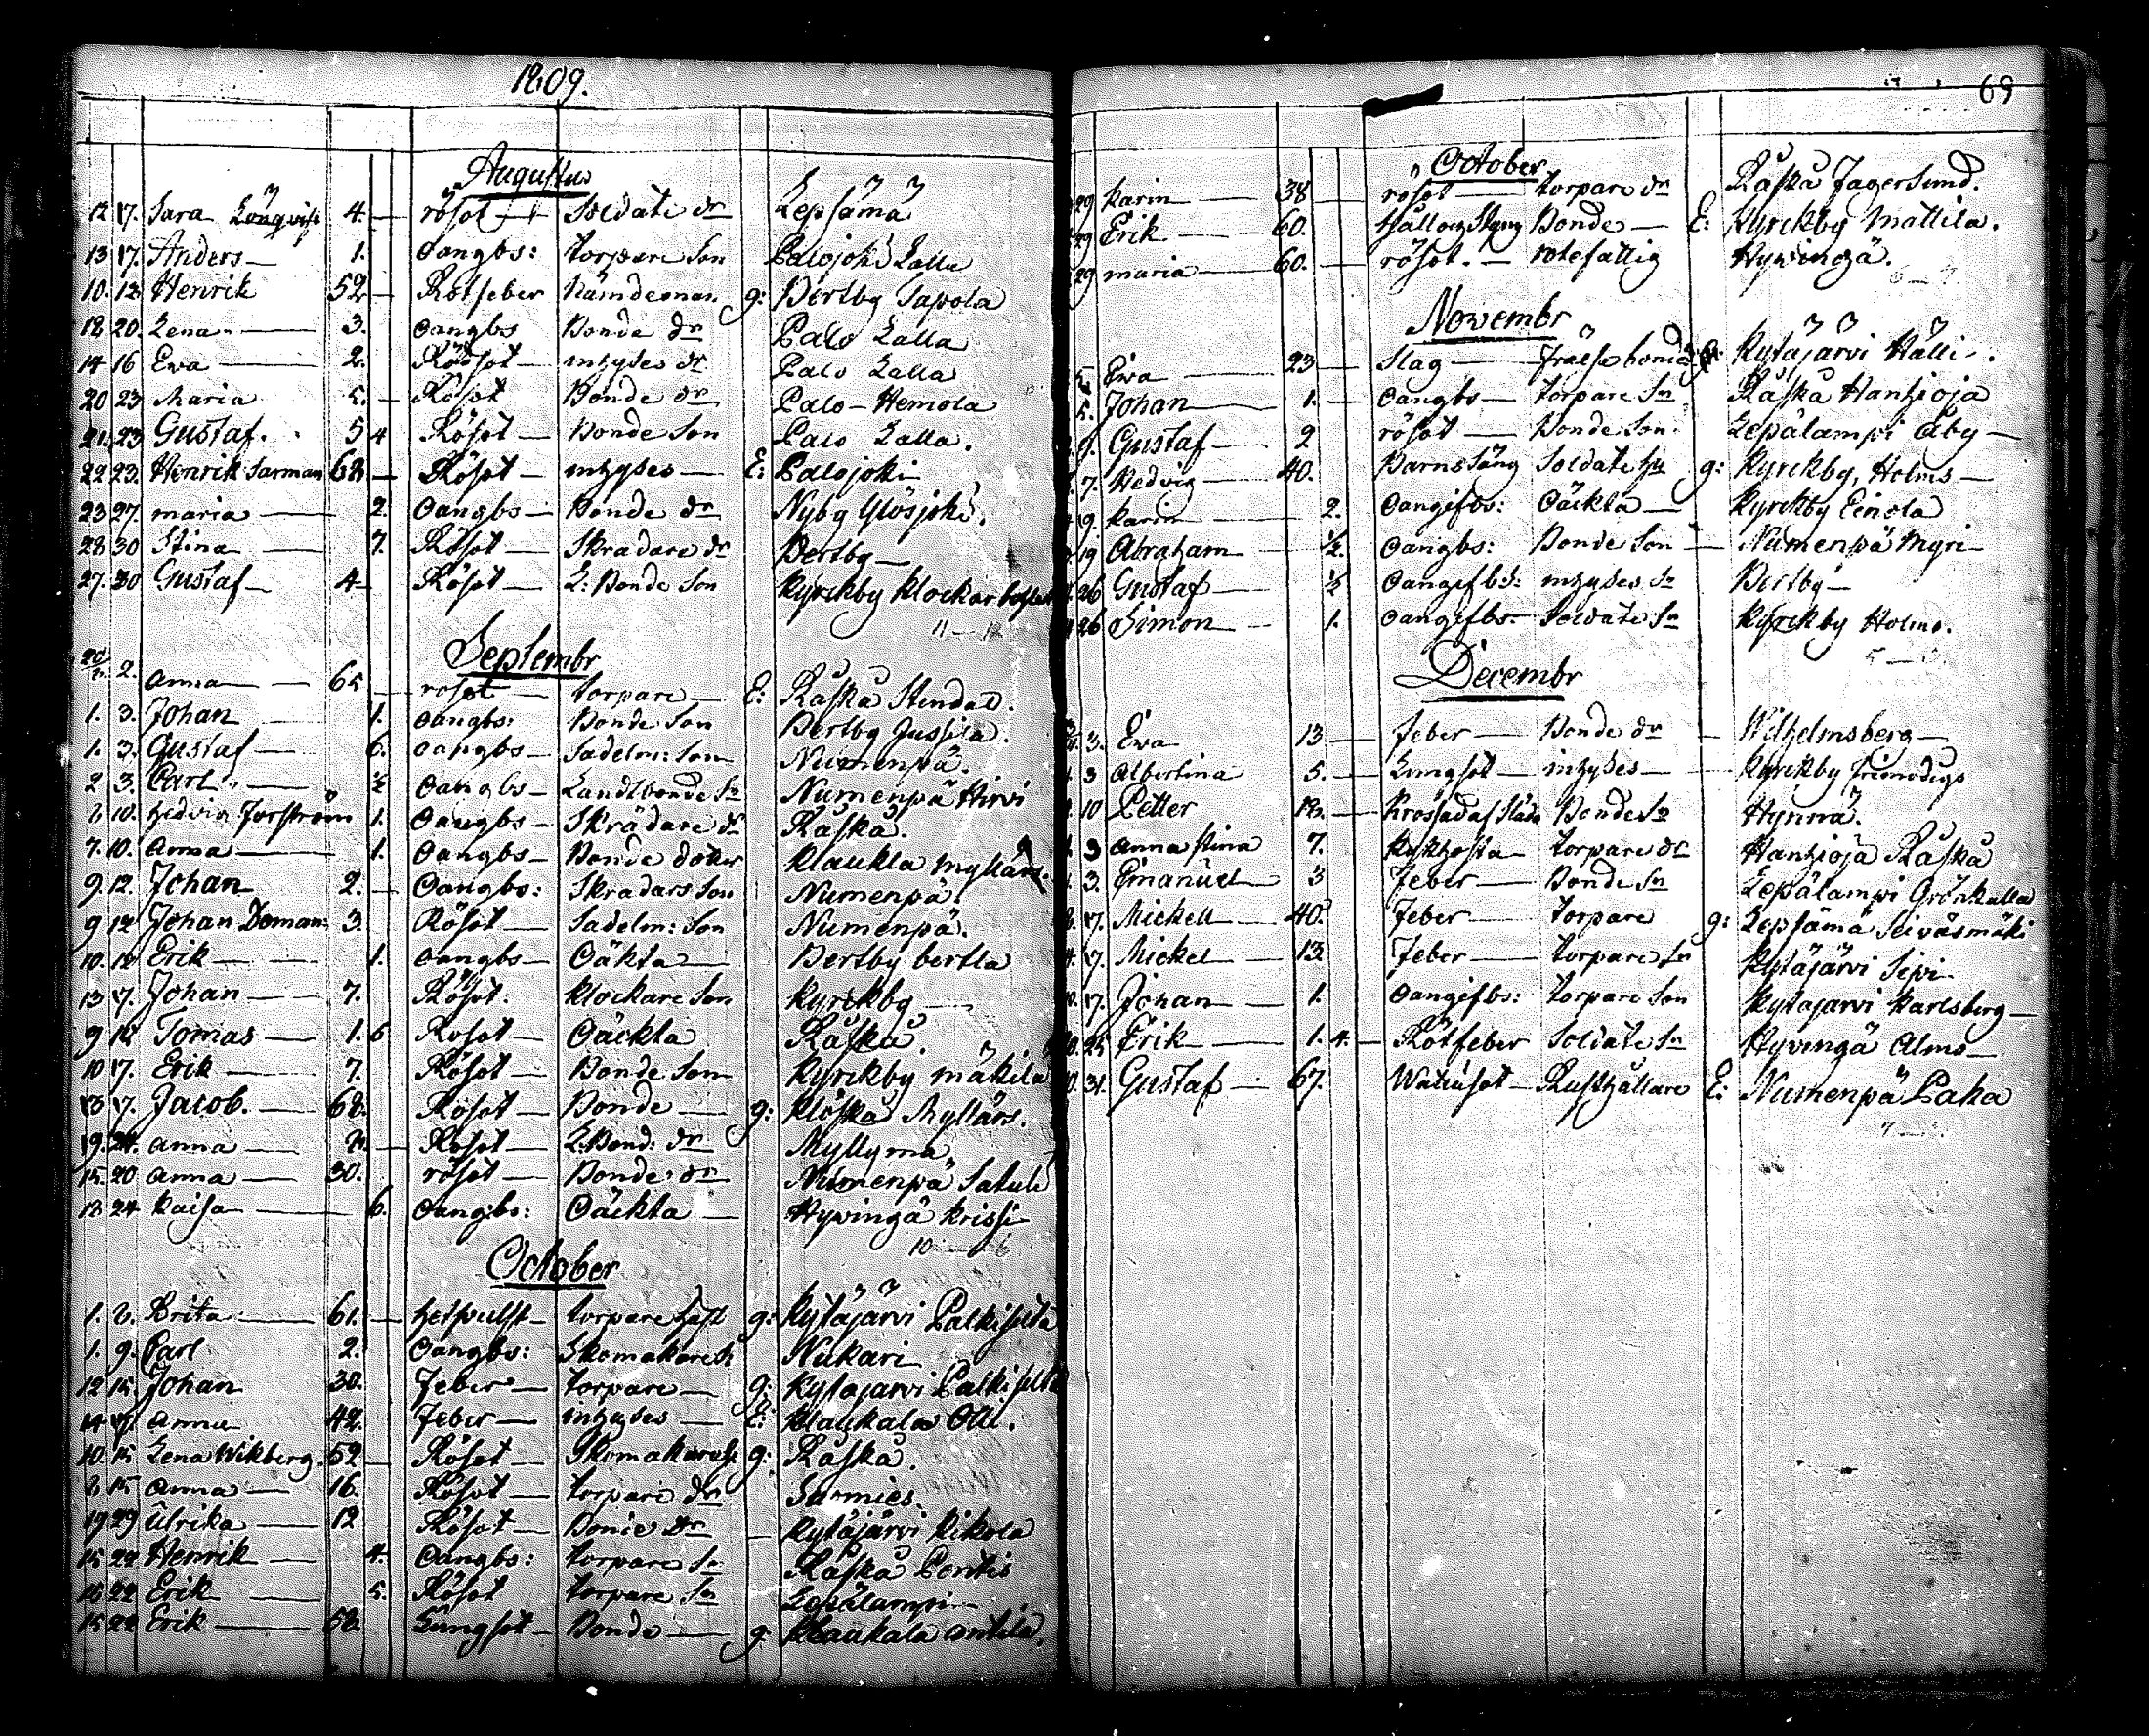 1809.
Augustus
12 17. Sara Lönqvist 4. — rösot — Soldate dr Lepsämä
13 17. Anders — 1. Oangbs: torpare Son Palojoki Lalla
10. 12 Henrik 52 — Rötfeber Nämdeman g: Pertby Sapola
18 20. Lena — 3. oangbs Bonde dr Palo Lalla
14 16 Ewa — 2. Rödsot — inhyses dr Palo Lalla
20 23 Maria 5. — Rösot Bonde dr Palo — Hemola
21. 23 Gustaf. 5 4 Rösot — Bonde Son Palo Lalla.
22 23. Henrik Sarman 68 — Rösot — inhyses — E: Palojoki
23 27. maria — 2. Oangbs — Bonde dr Nyby Ylösjoki.
28 30 Stina — 7. Rösot — Skradare dr Pertby —
27. 30 Gustaf — 4 — Rösot — L: Bonde Son Kyrckby Klockar
11 — 12
Septembr
2. anna — 65 — rosot — torpare — E: Raskå Stendal.
1. 3. Johan 1. oangbs: Bonde Son Pertby Jussila.
1. 3. Gustaf — 6. oangbs — Sadelm: Son Numenpä.
2 3. Carl — ½ Oangbs — Landtbonde Sn Numenpä Hirvi
10. Hedvig Forström 1. Oangbs — Skrädare dr Raskå.
7. 10. anna — 1. Oangbs — Bonde dotter Klaukla Myllärs.
9. 12. Johan 2. — Oangbs: Skradars Son Numenpä.
9 12 Johan Doman 3. Rösot — Sadelm: Son Numenpä.
10. 12 Erik — 1. oangbs — Oäkta — Pertby bertla
13 17. Johan — 7. Rösot. Klockare Son Kyrckby —
9 12 Tomas — 1. 6 Rosot — Oäckta Raskå.
10 17. Erik — 7. Rösot — Bonde Son Kyrckby mäkilä
13 17. Jacob. — 68. Rösot — Bonde — g: Klöskå Myllärs.
19. 24. anna — — Rosot — L. Bond: dr Myllyma
15. 20 anna — 30. rösot — Bonde dr Numenpä Satuli
18 24 Kaisa — 6. Oangbs: Oäckta — Hyvingä Krissi
10 — 6
October
1. 8. Brita — 61. — Hetpulsst — torpare g: Kytäjärvi Palkiselta
1. 9. Carl 2. Oangbs: Skomakare Nukari
12 15. Johan 30. Feber — torpare — g: Kytajarvi Palkiselta
14 17. anna 42. Feber — inhyses — E: Klaukala Olli.
10. 15 Lena Wikberg. 52 — Rösot — Skomakare g: Raskå.
15 anna — 16. Rösot — torpare dr Sarmies.
19 29 Ulrika — 12 Rösot — Bonde dr — Kytäjärvi Kikola
15 22 Henrik — 4. Oangbs: torpare Sn Raskå Pontis
16 22 Erik — 5. Rösot torpare Sn Lepälampi —
15 22 Erik — 58. Lungsot — Bonde — g: Klaukala antila.
69
October
29 Karin — 38 rösot — torpare dr Raskå Jagersund.
29 Erik — 60. Bonde — E: Kyrckby Mattila.
29 maria — 60. — rösot. — rotefattig Hyvingä.
Novembr
5 Ewa — 23 — Slag — Frälse bonde Kytäjärvi Hälli.
5. Johan — 1. — Oangbs — torpare Sn Raskå Hantzioja
9. Gustaf — 2 rösot — Bonde Son. Lepälampi Åby —
7. Hedvig — 40. Barnssäng Soldate Hu g: Kyrckby, Holms —
19. Karin — 2. Oangifbs: Oäckta — Kyrckby Einola
19 Abraham — ½. Oangbs: Bonde Son — Numenpä Myri —
26 Gustaf — ½ Oangifbs: inhyses Sn Pertby —
26 Simon — 1. oangifbs — Soldate Sn Kyrckby Holms.
Decembr
3. Ewa 13 — Feber — Bonde dr — Wilhelmsberg —
3 Albertina 5. — Lungsot — inhyses — Kyrckby Frimodigs
10 Petter 12. — Krossad af Släda Bonde Sn Hynnä.
3 anna stina 7. Kikhosta — torpare dr Hantzioja Raskå
3. Emanuel 3 Feber — Bonde Sn Lepälampi Grönkulla
17. Mickell — 40. Feber — torpare g: Lepsämä Seiväsmäki
17. Mickel — 13. Feber — torpare Sn Kytäjärvi Sipi
17. Johan — 1. Oangifbs: torpare Son Kytajärvi Karlsberg —
25 Erik — 1. 4. — Rötfeber Soldate Sn Hyvingä Alms —
31. Gustaf — 67. Watusot — Rusthållare E: Numenpä Paka